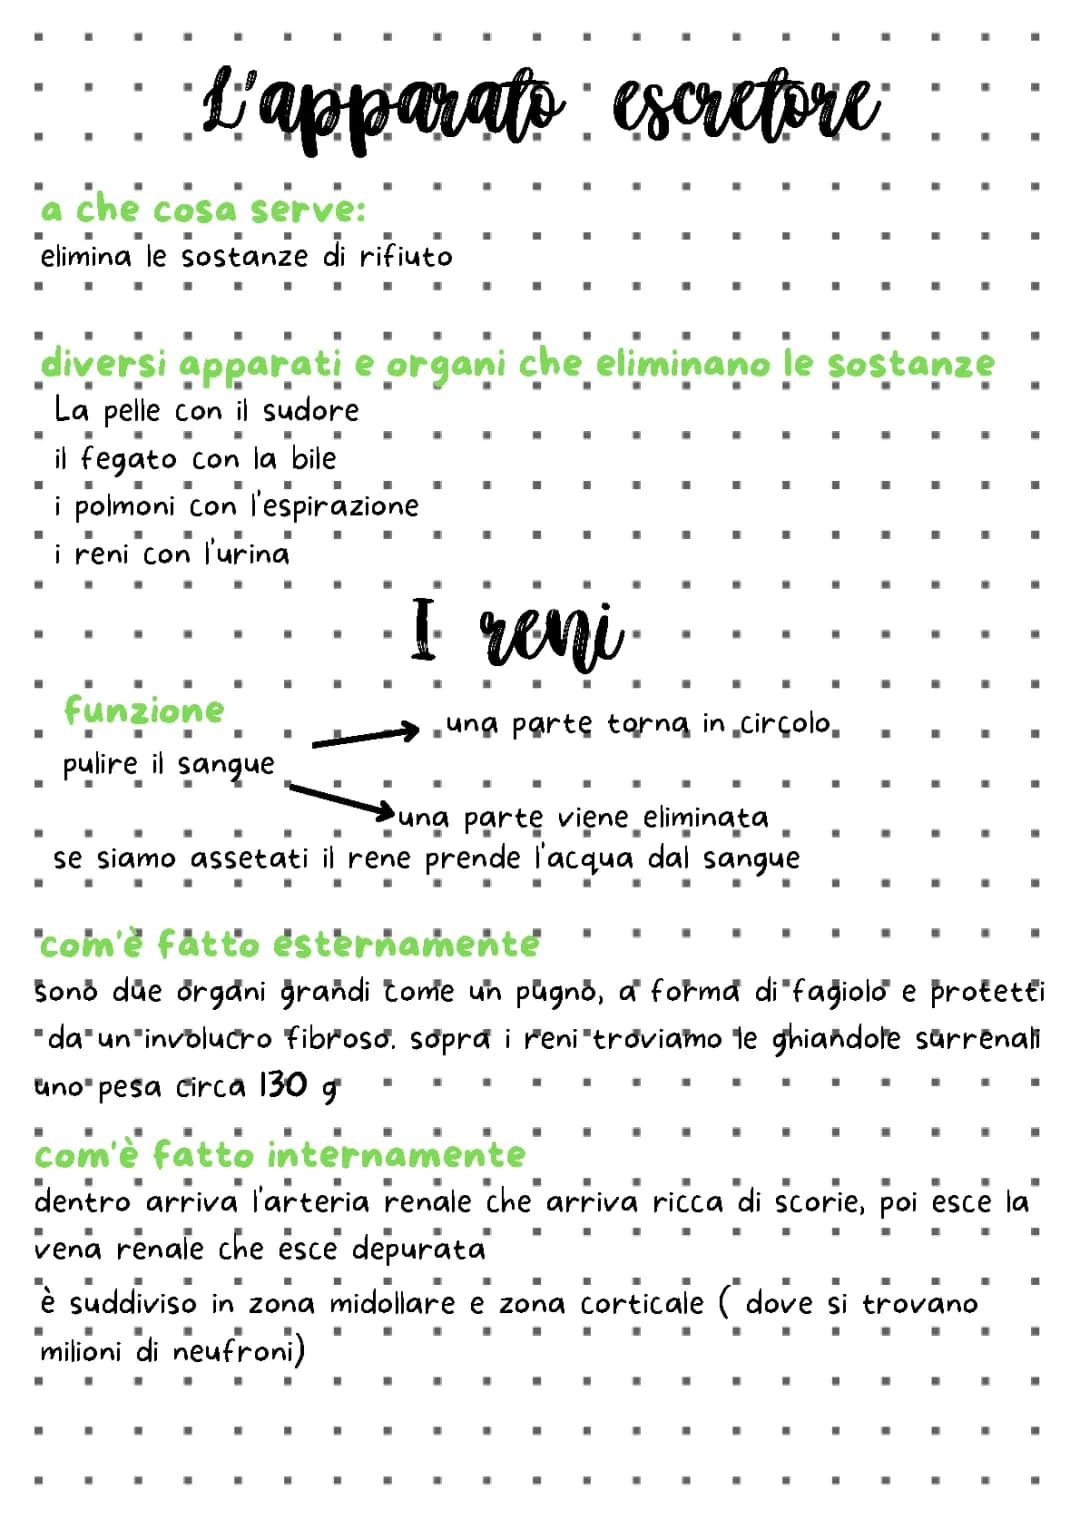 L'apparato escretore
a che cosa serve:
elimina le sostanze di rifiuto
diversi apparati e organi che eliminano le sostanze
La pelle con il sudore
il fegato con la bile
i polmoni con l'espirazione
i reni con l'urina
I reni
funzione
una parte torna in circolo
pulire il sangue
una parte viene eliminata
se siamo assetati il rene prende l'acqua dal sangue
com'è fatto esternamente
sono due organi grandi come un pugno, a forma di fagiolo e protetti
da un involucro fibroso. sopra i reni troviamo le ghiandole surrenali
uno pesa circa 130 g
com'è fatto internamente
dentro arriva l'arteria renale che arriva ricca di scorie, poi esce la
vena renale che esce depurata
è suddiviso in zona midollare e zona corticale ( dove si trovano
milioni di neufroni)